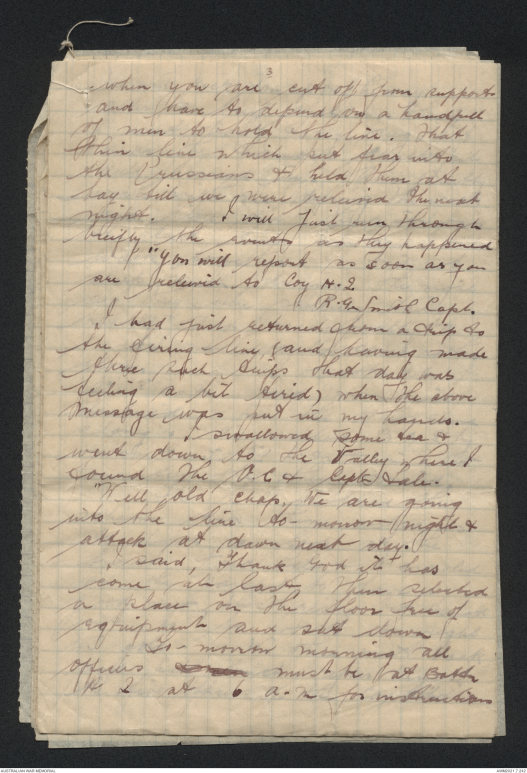 3
when you are cut off from supports
and have to depend on a handfull
of men to hold the line. That
thin line which put fear into
the Prussians & held them at
bay till we were relieved the next
night. I will just run through
briefly the events as they happened
"You will report as soon as you
are relieved to Coy H.Q
R.G. Smith Capt.
I had just returned from a trip to
the firing line (and having made
three such trips that day was
feeling a bit tired) when the above
message was put in my hands.
I swallowed some tea &
went down to the Valley where I
found the O.C & Capt Hale.
"Well old chap, We are going
into the line to-morrow night &
attack at dawn next day."
I said, Thank God it has
come at last, then selected
a place on the floor free of
equipment and sat down
To-morrow morning all
officers must be at Battn
H Q at 6 a.m for instructions
AUSTRALIAN WAR MEMORIAL